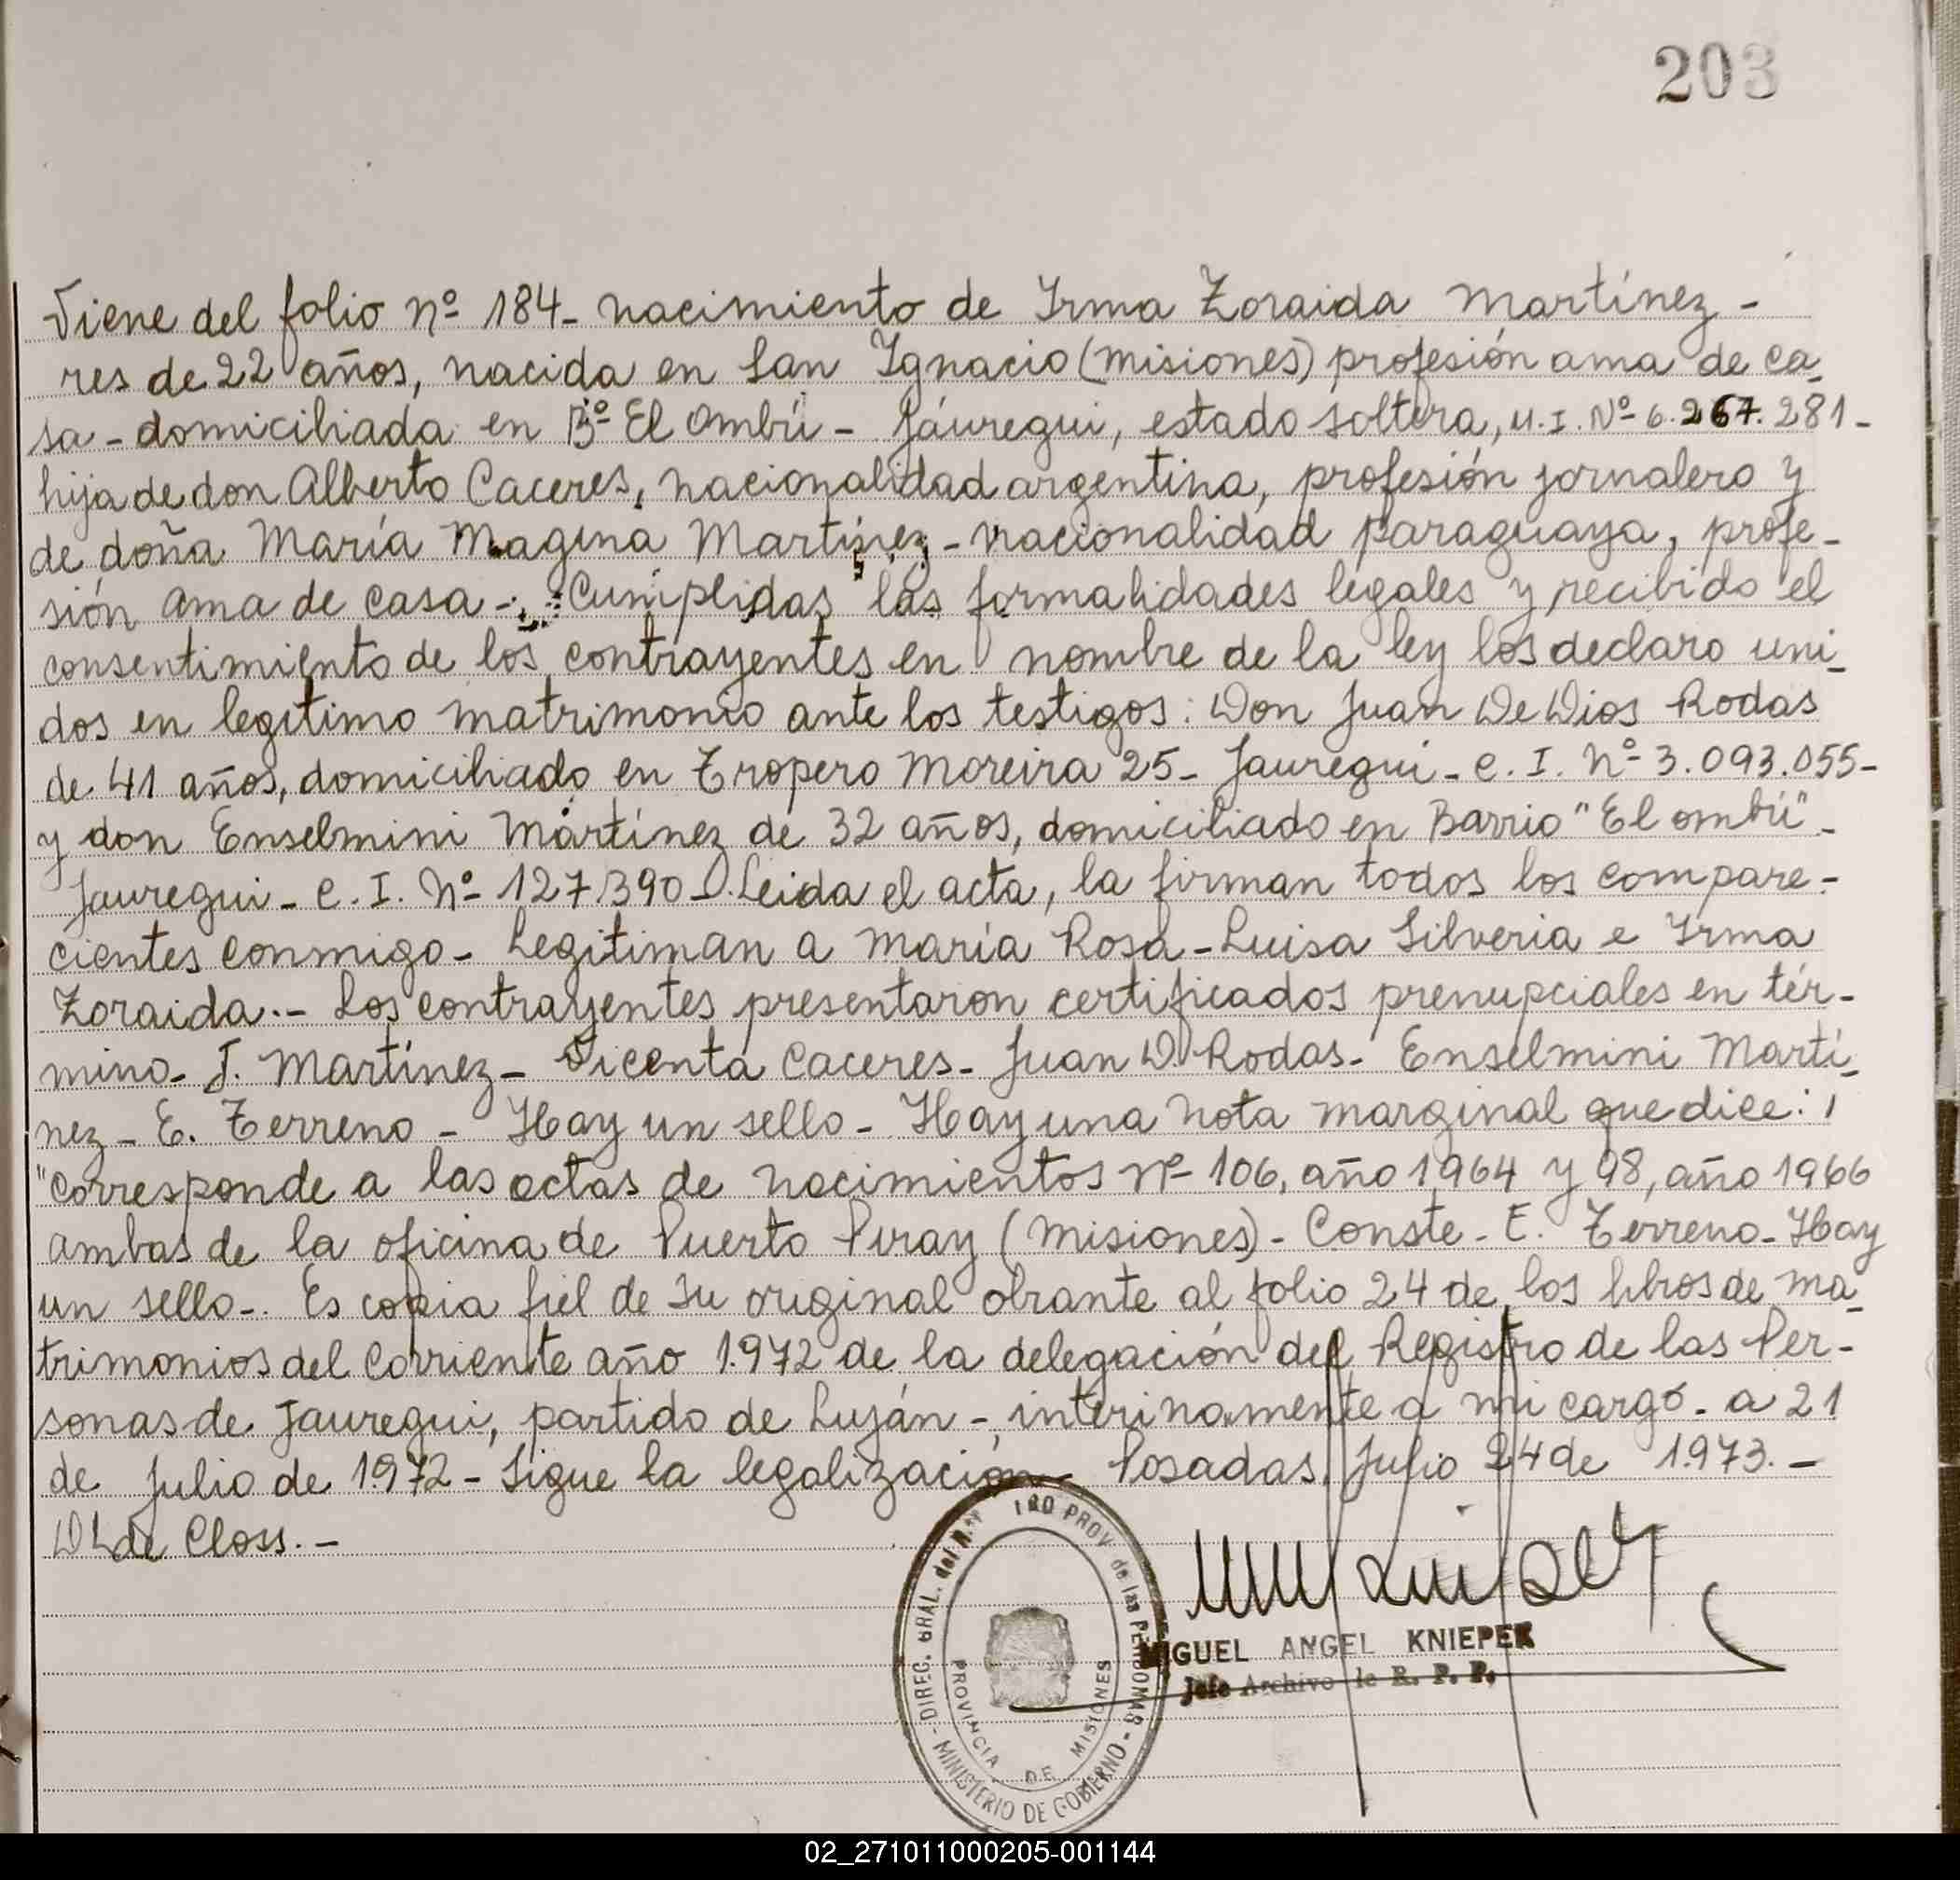 203
Viene del folio nº 184- nacimiento de Irma Zoraida Martínez -
res de 22 años, nacida en San Ignacio (Misiones) profesión ama de ca-
sa - domiciliada en Bº El Ombú - Jáuregui, estado soltera, M.I. Nº 6.267.281-
hija de don Alberto Caceres, nacionalidad argentina, profesión jornalero y
de doña María Magina Martínez - nacionalidad paraguaya, profe-
sión ama de casa -. Cumplidas las formalidades legales y recibido el
consentimiento de los contrayentes en nombre de la ley los declaro uni-
dos en legítimo matrimonio ante los testigos: Don Juan De Dios Rodas
de 41 años, domiciliado en Tropero Moreira 25- Jauregui - C. I. Nº 3.093.055-
y don Enselmini Martínez de 32 años, domiciliado en Barrio "El ombú"-
Jauregui - C. I. Nº 127.390 -. Leida el acta, la firman todos los compare-
cientes conmigo - Legitiman a María Rosa - Luisa Silveria e Irma
Zoraida.- Los contrayentes presentaron certificados prenupciales en tér-
mino - J. Martínez - Vicenta Caceres - Juan D. Rodas - Enselmini Martí-
nez - E. Terreno - Hay un sello - Hay una nota marginal que dice:
"Corresponde a las actas de nacimientos nº 106, año 1964 y 98, año 1966
ambas de la oficina de Puerto Piray (Misiones) - Conste - E. Terreno - Hay
un sello -. Es copia fiel de su original obrante al folio 24 de los libros de ma-
trimonios del corriente año 1.972 de la delegación del Registro de las Per-
sonas de Jauregui, partido de Luján -, interinamente a mi cargo - a 21
de Julio de 1.972 - Sigue la legalización - Posadas, Julio 24 de 1.973. -
DL de Closs. -
DIREC. GRAL. del PROV de las PERSONAS - MINISTERIO DE GOBIERNO -
PROVINCIA DE MISIONES
MIGUEL ANGEL KNIEPER
Jefe Archivo de R. P. P.
02_271011000205-001144